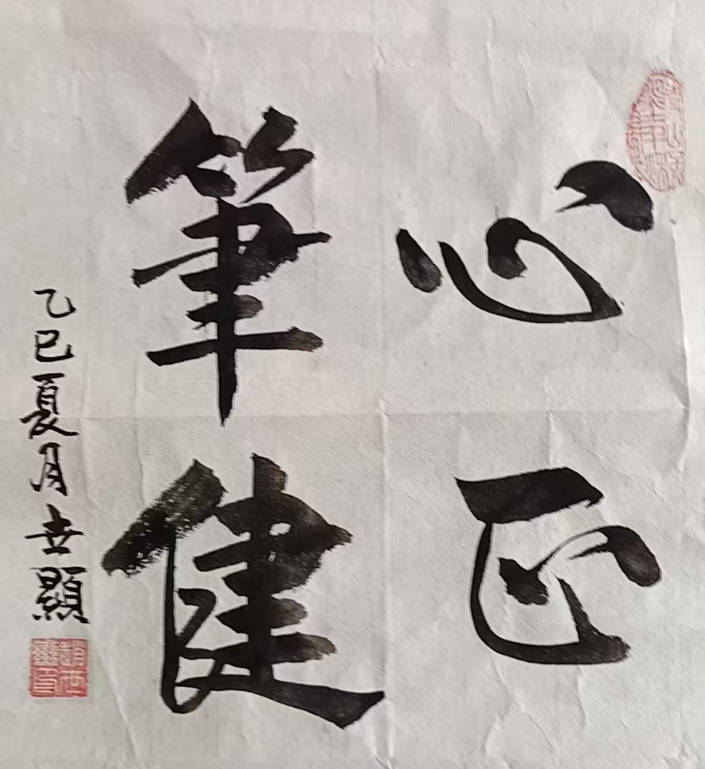 心正
筆健
乙巳夏月世顯